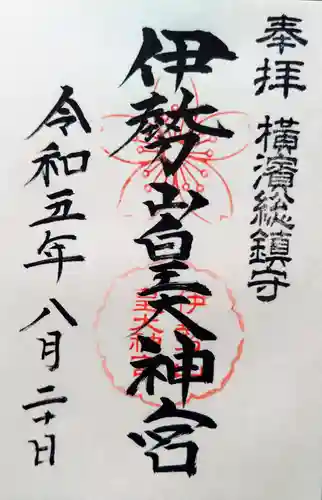 奉拝 横濱総鎮守
伊勢山皇大神宮
令和五年八月二十日